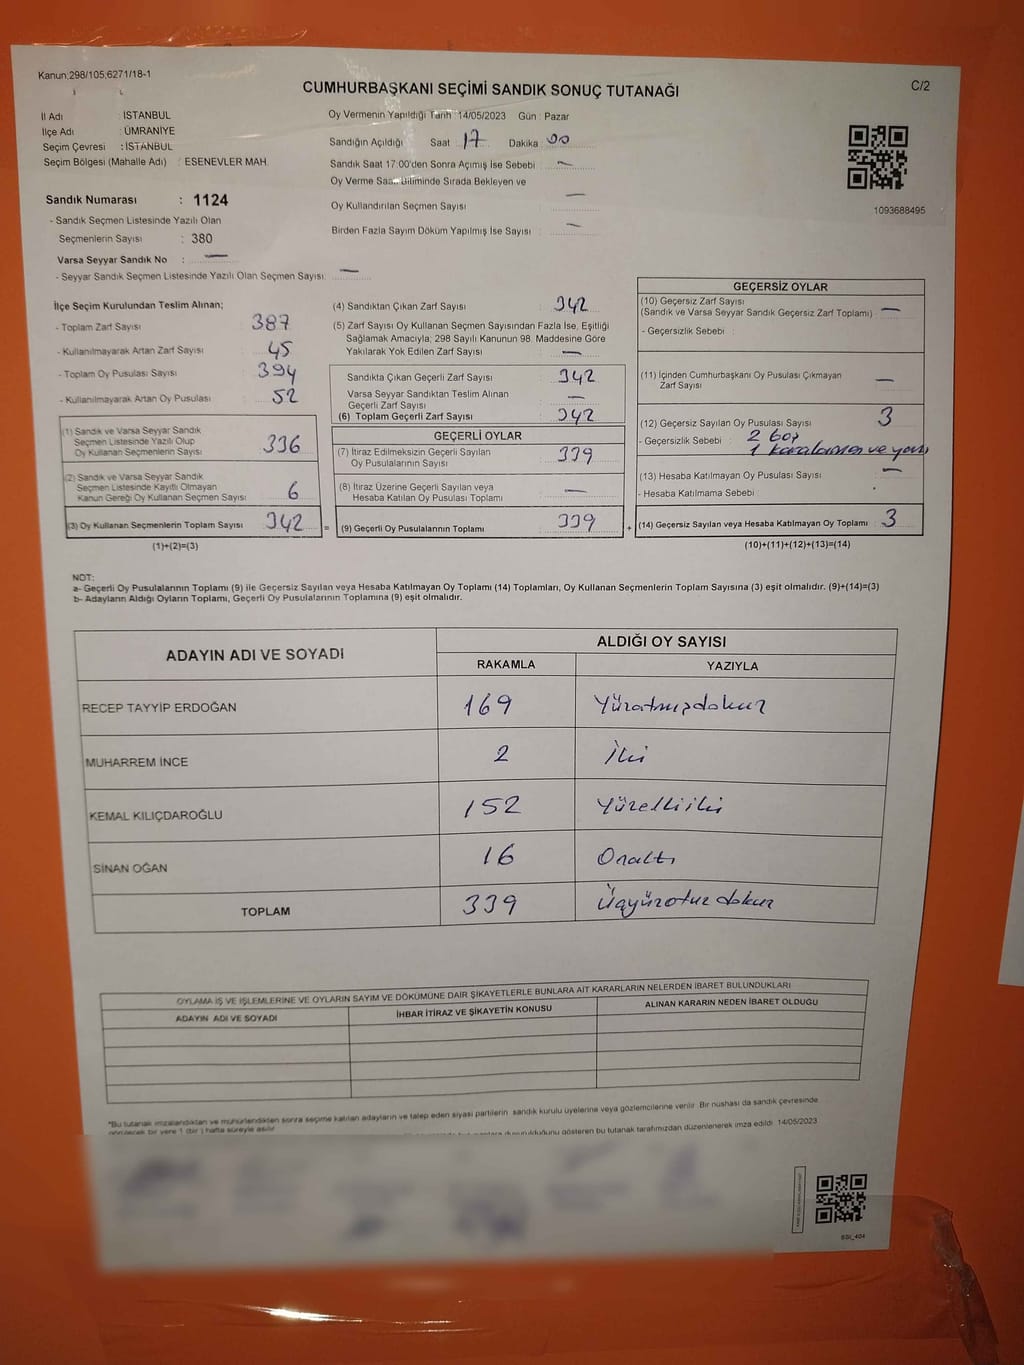 Kanun;298/105,6271/18-1
CUMHURBAŞKANI SEÇİMİ SANDIK SONUÇ TUTANAĞI
C/2
İl Adı : İSTANBUL
İlçe Adı : ÜMRANİYE
Seçim Çevresi : İSTANBUL
Seçim Bölgesi (Mahalle Adı) : ESENEVLER MAH.
Oy Vermenin Yapıldığı Tarih : 14/05/2023 Gün : Pazar
Sandığın Açıldığı Saat 17 Dakika 00
Sandık Saat 17:00'den Sonra Açımış İse Sebebi : —
Oy Verme Saati Bitiminde Sırada Bekleyen ve
Oy Kullandırılan Seçmen Sayısı —
Birden Fazla Sayım Döküm Yapılmış İse Sayısı : —
1093688495
Sandık Numarası : 1124
- Sandık Seçmen Listesinde Yazılı Olan
Seçmenlerin Sayısı : 380
Varsa Seyyar Sandık No : —
- Seyyar Sandık Seçmen Listesinde Yazılı Olan Seçmen Sayısı: —
İlçe Seçim Kurulundan Teslim Alınan;
- Toplam Zarf Sayısı : 387
- Kullanılmayarak Artan Zarf Sayısı : 45
- Toplam Oy Pusulası Sayısı : 394
- Kullanılmayarak Artan Oy Pusulası : 52
(1) Sandık ve Varsa Seyyar Sandık
Seçmen Listesinde Yazılı Olup
Oy Kullanan Seçmenlerin Sayısı 336
(2) Sandık ve Varsa Seyyar Sandık
Seçmen Listesinde Kayıtlı Olmayan
Kanun Gereği Oy Kullanan Seçmen Sayısı 6
(3) Oy Kullanan Seçmenlerin Toplam Sayısı 342 =
(1)+(2)=(3)
(4) Sandıktan Çıkan Zarf Sayısı : 342
(5) Zarf Sayısı Oy Kullanan Seçmen Sayısından Fazla İse, Eşitliği
Sağlamak Amacıyla; 298 Sayılı Kanunun 98. Maddesine Göre
Yakılarak Yok Edilen Zarf Sayısı : —
Sandıkta Çıkan Geçerli Zarf Sayısı : 342
Varsa Seyyar Sandıktan Teslim Alınan
Geçerli Zarf Sayısı : —
(6) Toplam Geçerli Zarf Sayısı : 342
GEÇERLİ OYLAR
(7) İtiraz Edilmeksizin Geçerli Sayılan
Oy Pusulalarının Sayısı : 339
(8) İtiraz Üzerine Geçerli Sayılan veya
Hesaba Katılan Oy Pusulası Toplamı : —
(9) Geçerli Oy Pusulalarının Toplamı : 339 +
GEÇERSİZ OYLAR
(10) Geçersiz Zarf Sayısı
(Sandık ve Varsa Seyyar Sandık Geçersiz Zarf Toplamı) : —
- Geçersizlik Sebebi :
(11) İçinden Cumhurbaşkanı Oy Pusulası Çıkmayan
Zarf Sayısı : —
(12) Geçersiz Sayılan Oy Pusulası Sayısı : 3
- Geçersizlik Sebebi : 2 boş
1 karalanmış ve yazı
(13) Hesaba Katılmayan Oy Pusulası Sayısı : —
- Hesaba Katılmama Sebebi :
(14) Geçersiz Sayılan veya Hesaba Katılmayan Oy Toplamı : 3
(10)+(11)+(12)+(13)=(14)
NOT:
a- Geçerli Oy Pusulalarının Toplamı (9) ile Geçersiz Sayılan veya Hesaba Katılmayan Oy Toplamı (14) Toplamları, Oy Kullanan Seçmenlerin Toplam Sayısına (3) eşit olmalıdır. (9)+(14)=(3)
b- Adayların Aldığı Oyların Toplamı, Geçerli Oy Pusulalarının Toplamına (9) eşit olmalıdır.
ADAYIN ADI VE SOYADI
ALDIĞI OY SAYISI
RAKAMLA YAZIYLA
RECEP TAYYİP ERDOĞAN 169 Yüzatmışdokuz
MUHARREM İNCE 2 İki
KEMAL KILIÇDAROĞLU 152 Yüzelliiki
SİNAN OĞAN 16 Onaltı
TOPLAM 339 Üçyüzotuzdokuz
OYLAMA İŞ VE İŞLEMLERİNE VE OYLARIN SAYIM VE DÖKÜMÜNE DAİR ŞİKAYETLERLE BUNLARA AİT KARARLARIN NELERDEN İBARET BULUNDUKLARI
ADAYIN ADI VE SOYADI İHBAR İTİRAZ VE ŞİKAYETİN KONUSU ALINAN KARARIN NEDEN İBARET OLDUĞU
*Bu tutanak imzalandıktan ve mühürlendikten sonra seçime katılan adayların ve talep eden siyasi partilerin sandık kurulu üyelerine veya gözlemcilerine verilir. Bir nushası da sandık çevresinde
görülecek bir yere 1 (bir) hafta süreyle asılır.
gösteren bu tutanak tarafımızdan düzenlenerek imza edildi. 14/05/2023
SSI_404